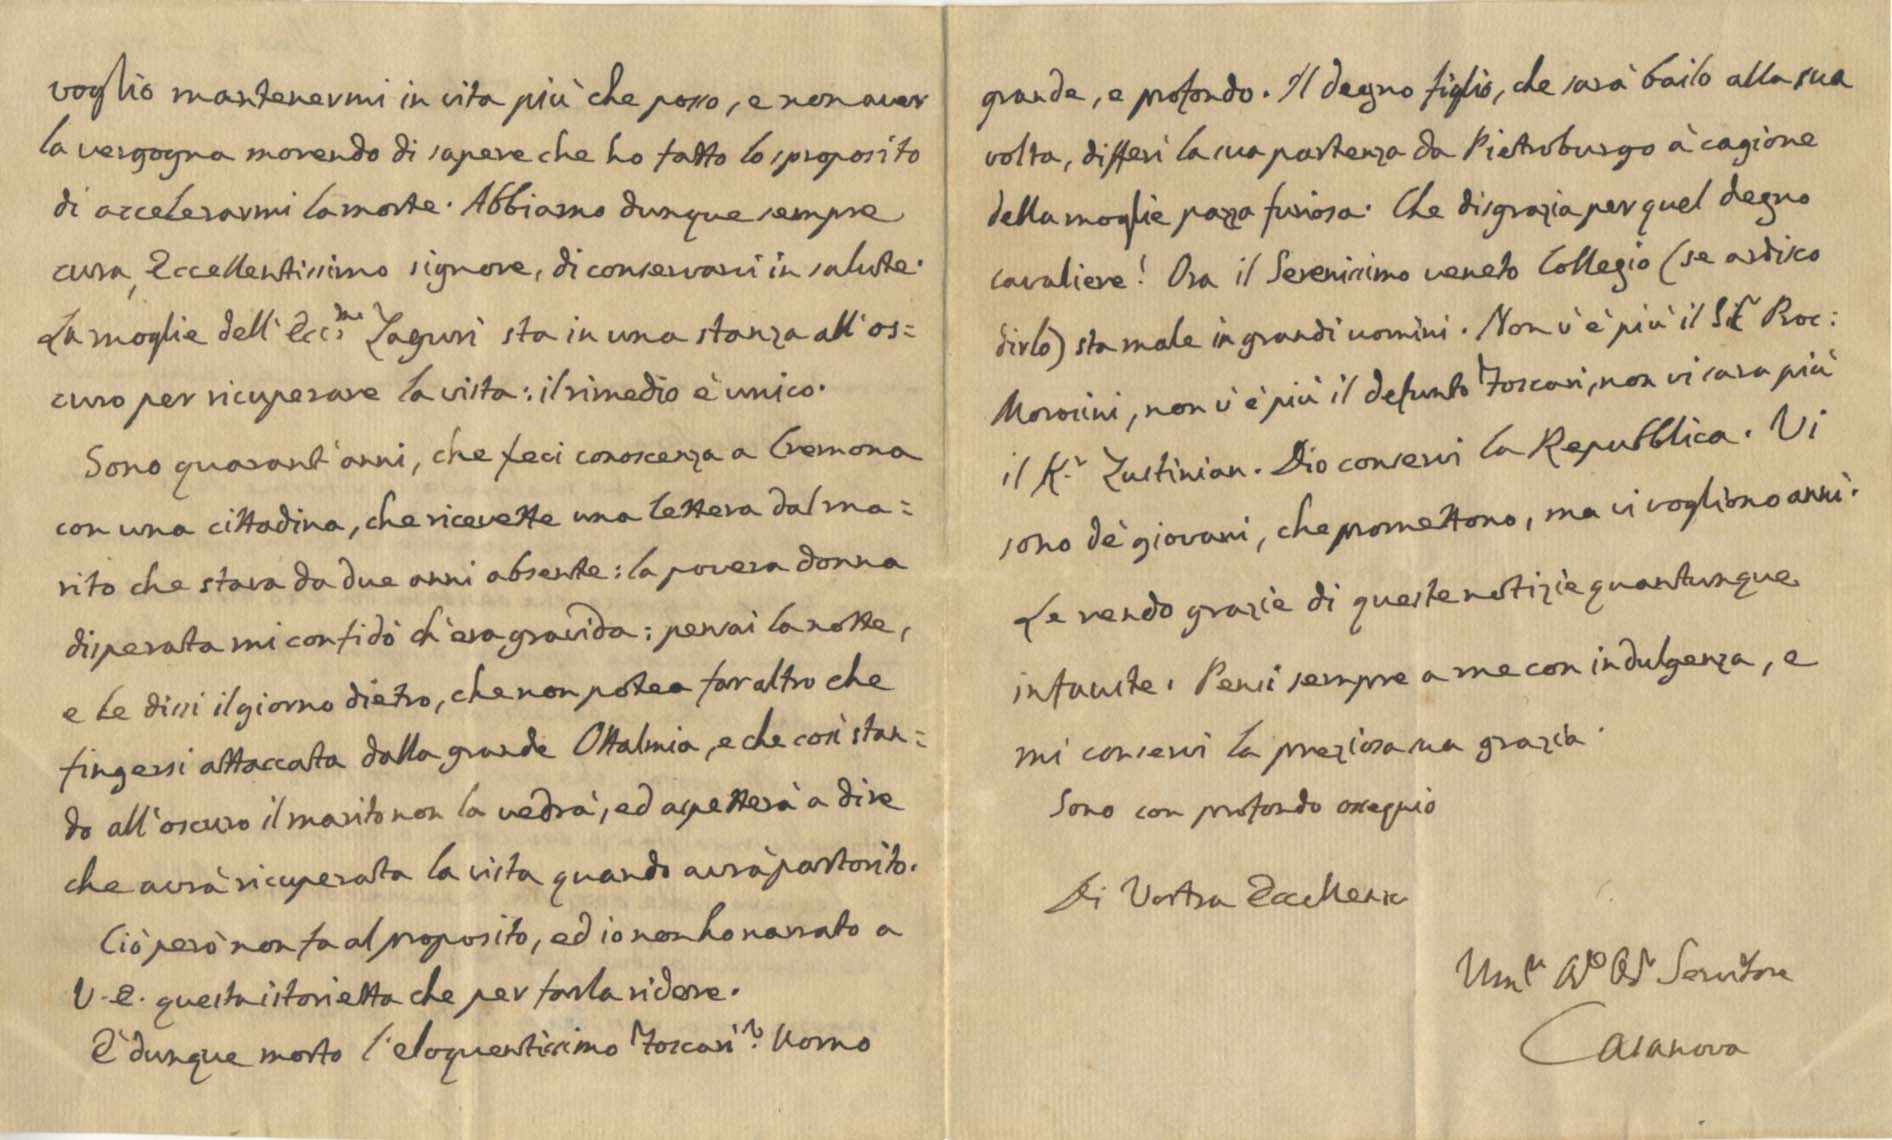 voglio mantenermi in vita più che posso, e non aver
la vergogna morendo di sapere che ho fatto lo sproposito
di accelerarmi la morte. Abbiamo dunque sempre
cura, Eccellentissimo signore, di conservarci in salute.
La moglie dell' Ecc:mo Zaguri sta in una stanza all' os=
curo per ricuperare la vista: il rimedio è unico.
Sono quarant'anni, che feci conoscenza a Cremona
con una cittadina, che ricevette una lettera dal ma=
rito che stava da due anni absente: la povera donna
disperata mi confidò ch'era gravida: pensai la notte,
e le dissi il giorno dietro, che non potea far altro che
fingersi attaccata dalla grande Ottalmia, e che così stan=
do all'oscuro il marito non la vedrà, ed aspetterà a dire
che avrà ricuperata la vista quando avrà partorito.
Ciò però non fa al proposito, ed io non ho narrato a
V. E. questa istorietta che per farla ridere.
È dunque morto l'eloquentissimo Foscari? Uomo
grande, e profondo. Il degno figlio, che sarà bailo alla sua
volta, differì la sua partenza da Pietroburgo à cagione
della moglie pazza furiosa. Che disgrazia per quel degno
cavaliere! Ora il Serenissimo veneto Collegio (se ardisco
dirlo) sta male in grandi uomini. Non v'è più il Sr Proc:
Morosini, non v'è più il defunto Foscari, non vi sara più
il K.r Zustinian. Dio conservi la Repubblica. Vi
sono de' giovani, che promettono, ma vi vogliono anni.
Le rendo grazie di queste notizie quantunque
infauste. Pensi sempre a me con indulgenza, e
mi conservi la preziosa sua grazia.
Sono con profondo ossequio
Di Vostra Eccellenza
Servitore
Casanova